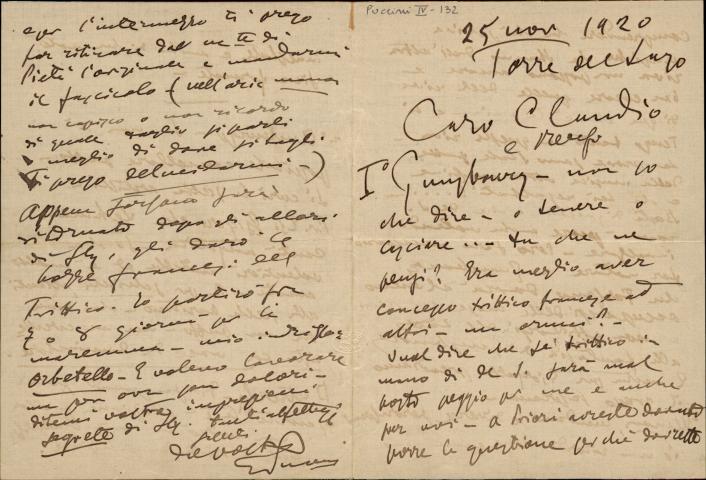 Puccini IV-132
25 nov 1920
Torre del Lago
Caro Claudio
e Renzo
I° Gunsbourg - non so
che dire - o tenere o
... tu che ne
pensi? Era meglio aver
concesso trittico francese ad
altri - ma ormai? -
Vuol dire che se trittico in
mano di sarà mal
posto peggio per me e anche
per voi - a Priori avreste dovuto
porre la questione perchè dovrette
e per l'intermezzo ti prego
far ritirare dal di
l'originale e mandarmi
il fascicolo (nell'aria manca
non capisco o non ricordo
di quale taglio si parli
meglio di dove si tagli
Ti prego delucidarmi -)
Appena Forzano sarà
ritornato dopo gli allori
di Sly, gli darò le
bozze francesi del
Trittico. Io partirò fra
7 o 8 giorni per la
maremma - mio indirizzo
Orbetello - E volevo lavorare
un per ora
ditemi vostra impressioni
segrete di Sly. Tanti affettuosi
dal vostro
GPuccini